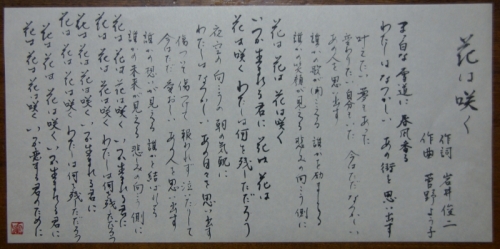 花は咲く
作詞 岩井俊二
作曲 菅野よう子
真白な 雪道に 春風香る
わたしは なつかしい あの街を 思い出す
叶えたい 夢もあった
変わりたい 自分もいた 今はただ なつかしい
あの人を 思い出す
誰かの歌が聞こえる 誰かを励ましてる
誰かの笑顔が見える 悲しみの向こう側に
花は 花は 花は咲く
いつか生まれる君に 花は 花は
花は咲く わたしは何を残しただろう
夜空の 向こうの 朝の気配に
わたしは なつかしい あの日々を 思い出す
傷ついて 傷つけて 報われず 泣いたりして
今はただ 愛おしい あの人を 思い出す
誰かの想いが見える 誰かと結ばれてる
誰かの未来が見える 悲しみの向こう側に
花は 花は 花は咲く いつか生まれる君に
花は 花は 花は咲く わたしは何を残しただろう
花は 花は 花は咲く いつか生まれる君に
花は 花は 花は咲く わたしは何を残しただろう
花は 花は 花は咲く いつか生まれる君に
花は 花は 花は咲く いつか恋する君のために